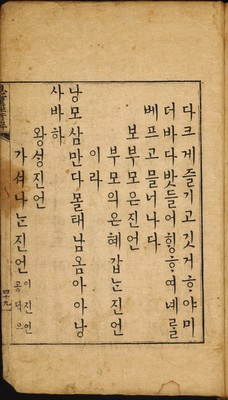 다크게즐기고깃거ᄒᆞ야미
더바다밧들어ᄒᆡᆼᄒᆞ여녜를
베프고믈너나다
보부모은진언
부모의은혜갑ᄂᆞᆫ진언
이라
낭모삼만다몰태남옴아아낭
사바하
왕성진언
가셔나ᄂᆞᆫ진언
이진언
공덕으